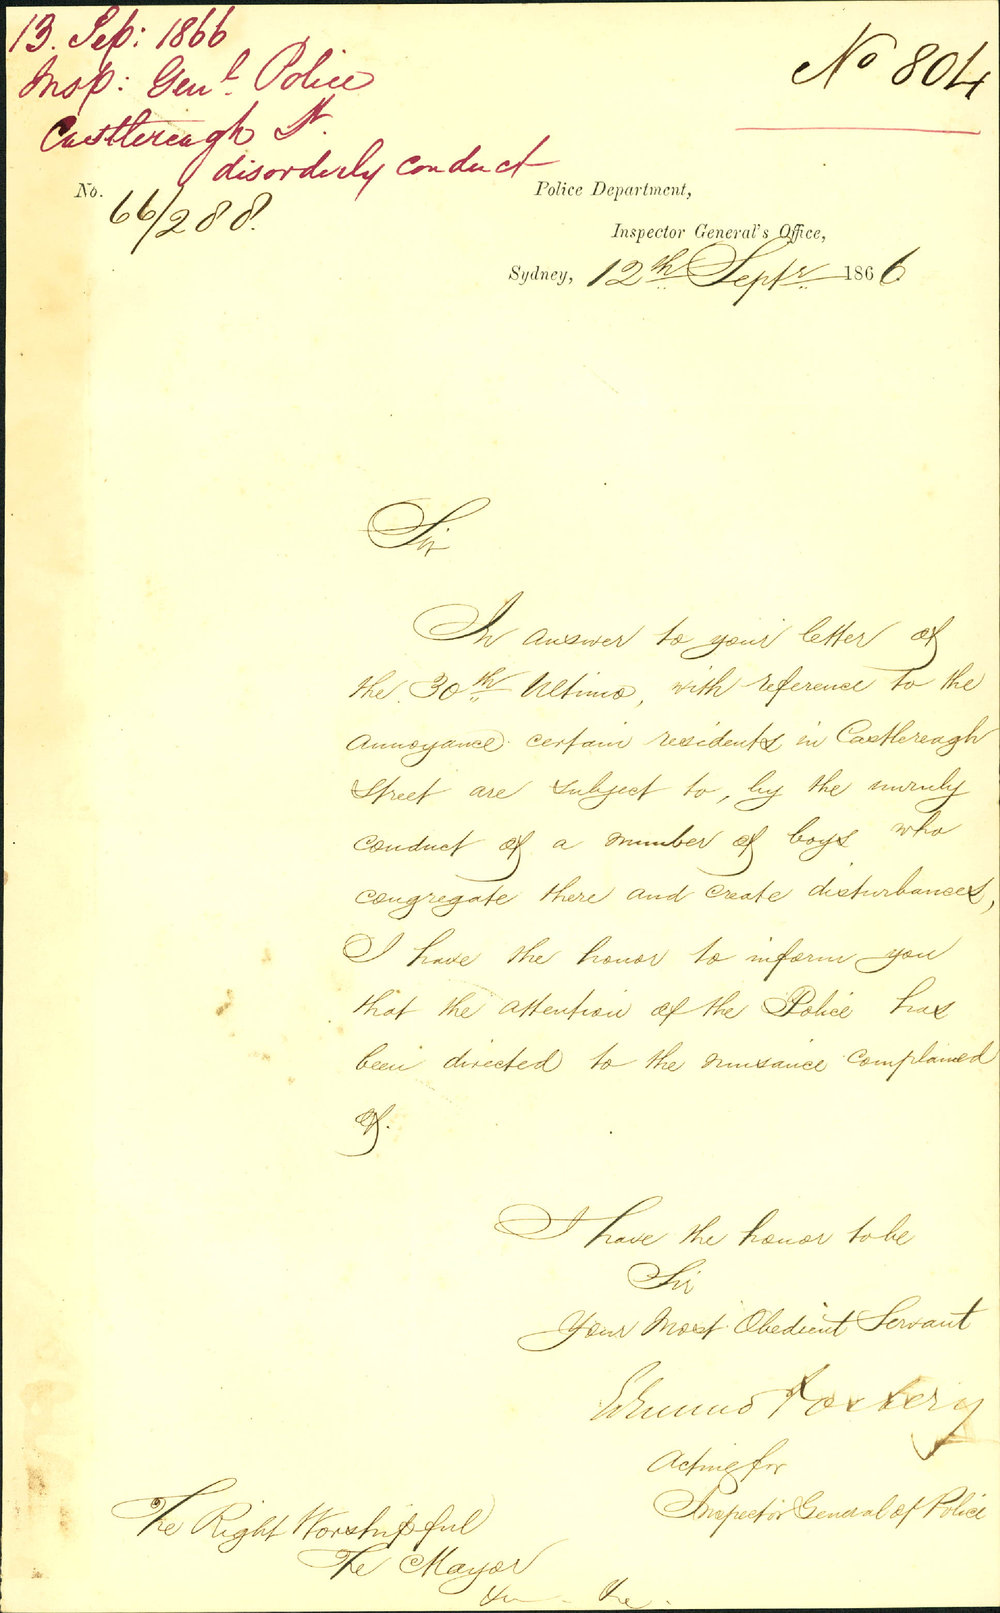 13. Sep: 1866
Insp: Genl. Police
Castlereagh St.
disorderly conduct
No 804
No. 66/288.
Police Department,
Inspector General's Office,
Sydney, 12th Septr 1866
Sir
In answer to your letter of
the 30th Ultimo, with reference to the
annoyance certain residents in Castlereagh
Street are subject to, by the unruly
conduct of a number of boys who
congregate there and create disturbances,
I have the honor to inform you
that the attention of the Police has
been directed to the nuisance complained
of.
I have the honor to be
Sir
Your Most Obedient Servant
Edmund Fosbery
Acting for
Inspector General of Police
The Right Worshipful
The Mayor